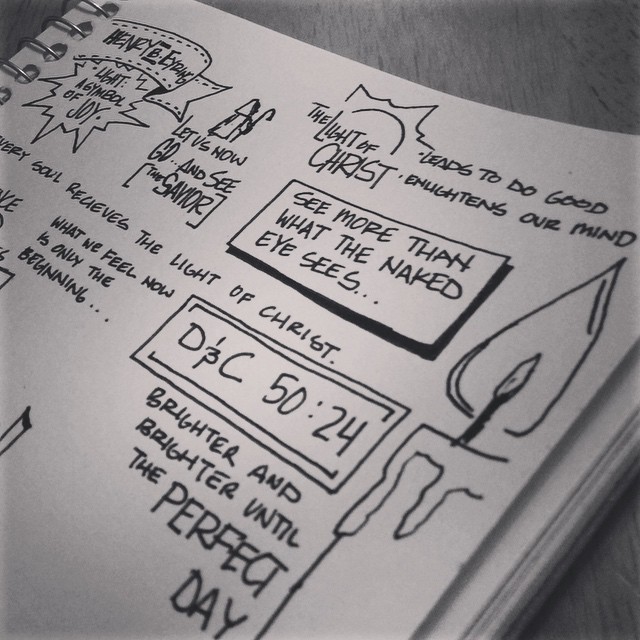 HENRY B. Eyring
LIGHT
A SYMBOL
OF
JOY
AS
LET US NOW
GO AND SEE
[THE SAVIOR]
THE
LIGHT OF
CHRIST. LEADS TO DO GOOD
ENLIGHTENS OUR MIND
SEE MORE THAN
WHAT THE NAKED
EYE SEES...
EVERY SOUL RECIEVES THE LIGHT OF CHRIST.
WHAT WE FEEL NOW
IS ONLY THE
BEGINNING...
D&C 50:24
BRIGHTER AND
BRIGHTER UNTIL
THE PERFECT
DAY